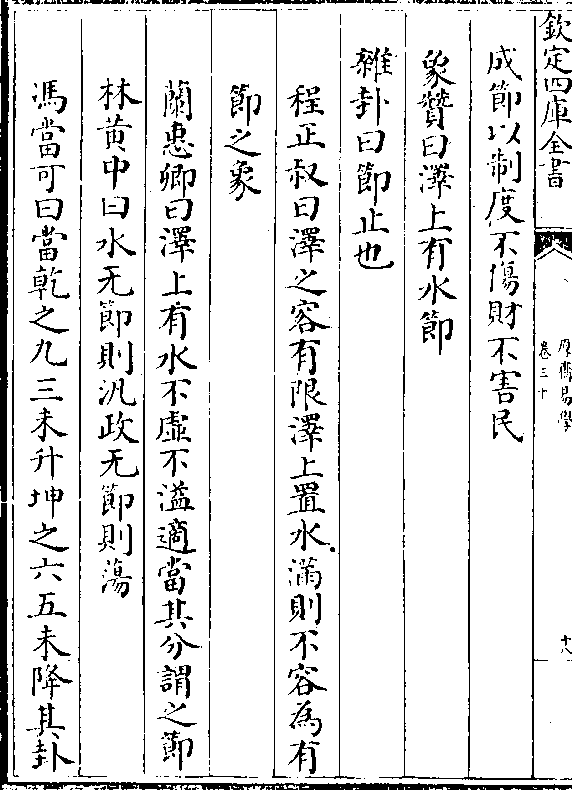 欽定四庫全書
厚齋易學
卷三十
十八
成節以制度不傷財不害民
象贊曰澤上有水節
雜卦曰節止也
程正叔曰澤之容有限澤上置水滿則不容為有
節之象
蘭惠卿曰澤上有水不虛不溢適當其分謂之節
林黃中曰水无節則汎政无節則蕩
馮當可曰當乾之九三未升坤之六五未降其卦